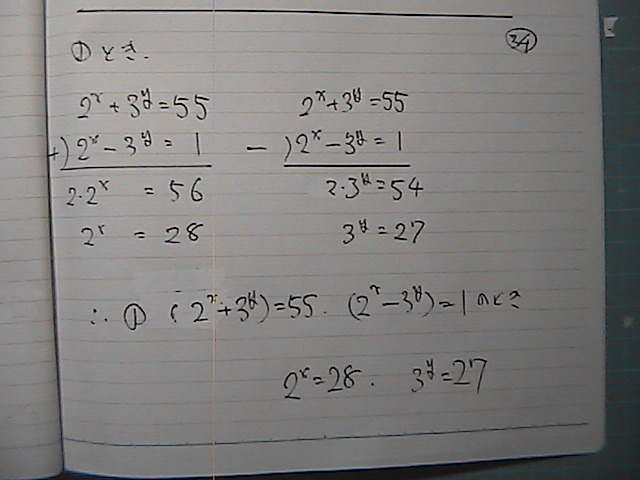 ① のとき.
34
2ˣ + 3ʸ = 55
+) 2ˣ - 3ʸ = 1
2・2ˣ = 56
2ˣ = 28
2ˣ + 3ʸ = 55
-) 2ˣ - 3ʸ = 1
2・3ʸ = 54
3ʸ = 27
∴ ① (2ˣ + 3ʸ) = 55. (2ˣ - 3ʸ) = 1 のとき
2ˣ = 28. 3ʸ = 27